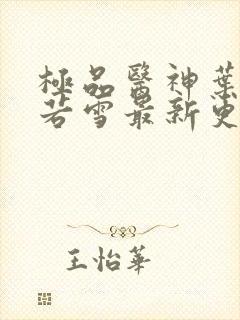 極品醫神葉
若雪最新更
王怡華